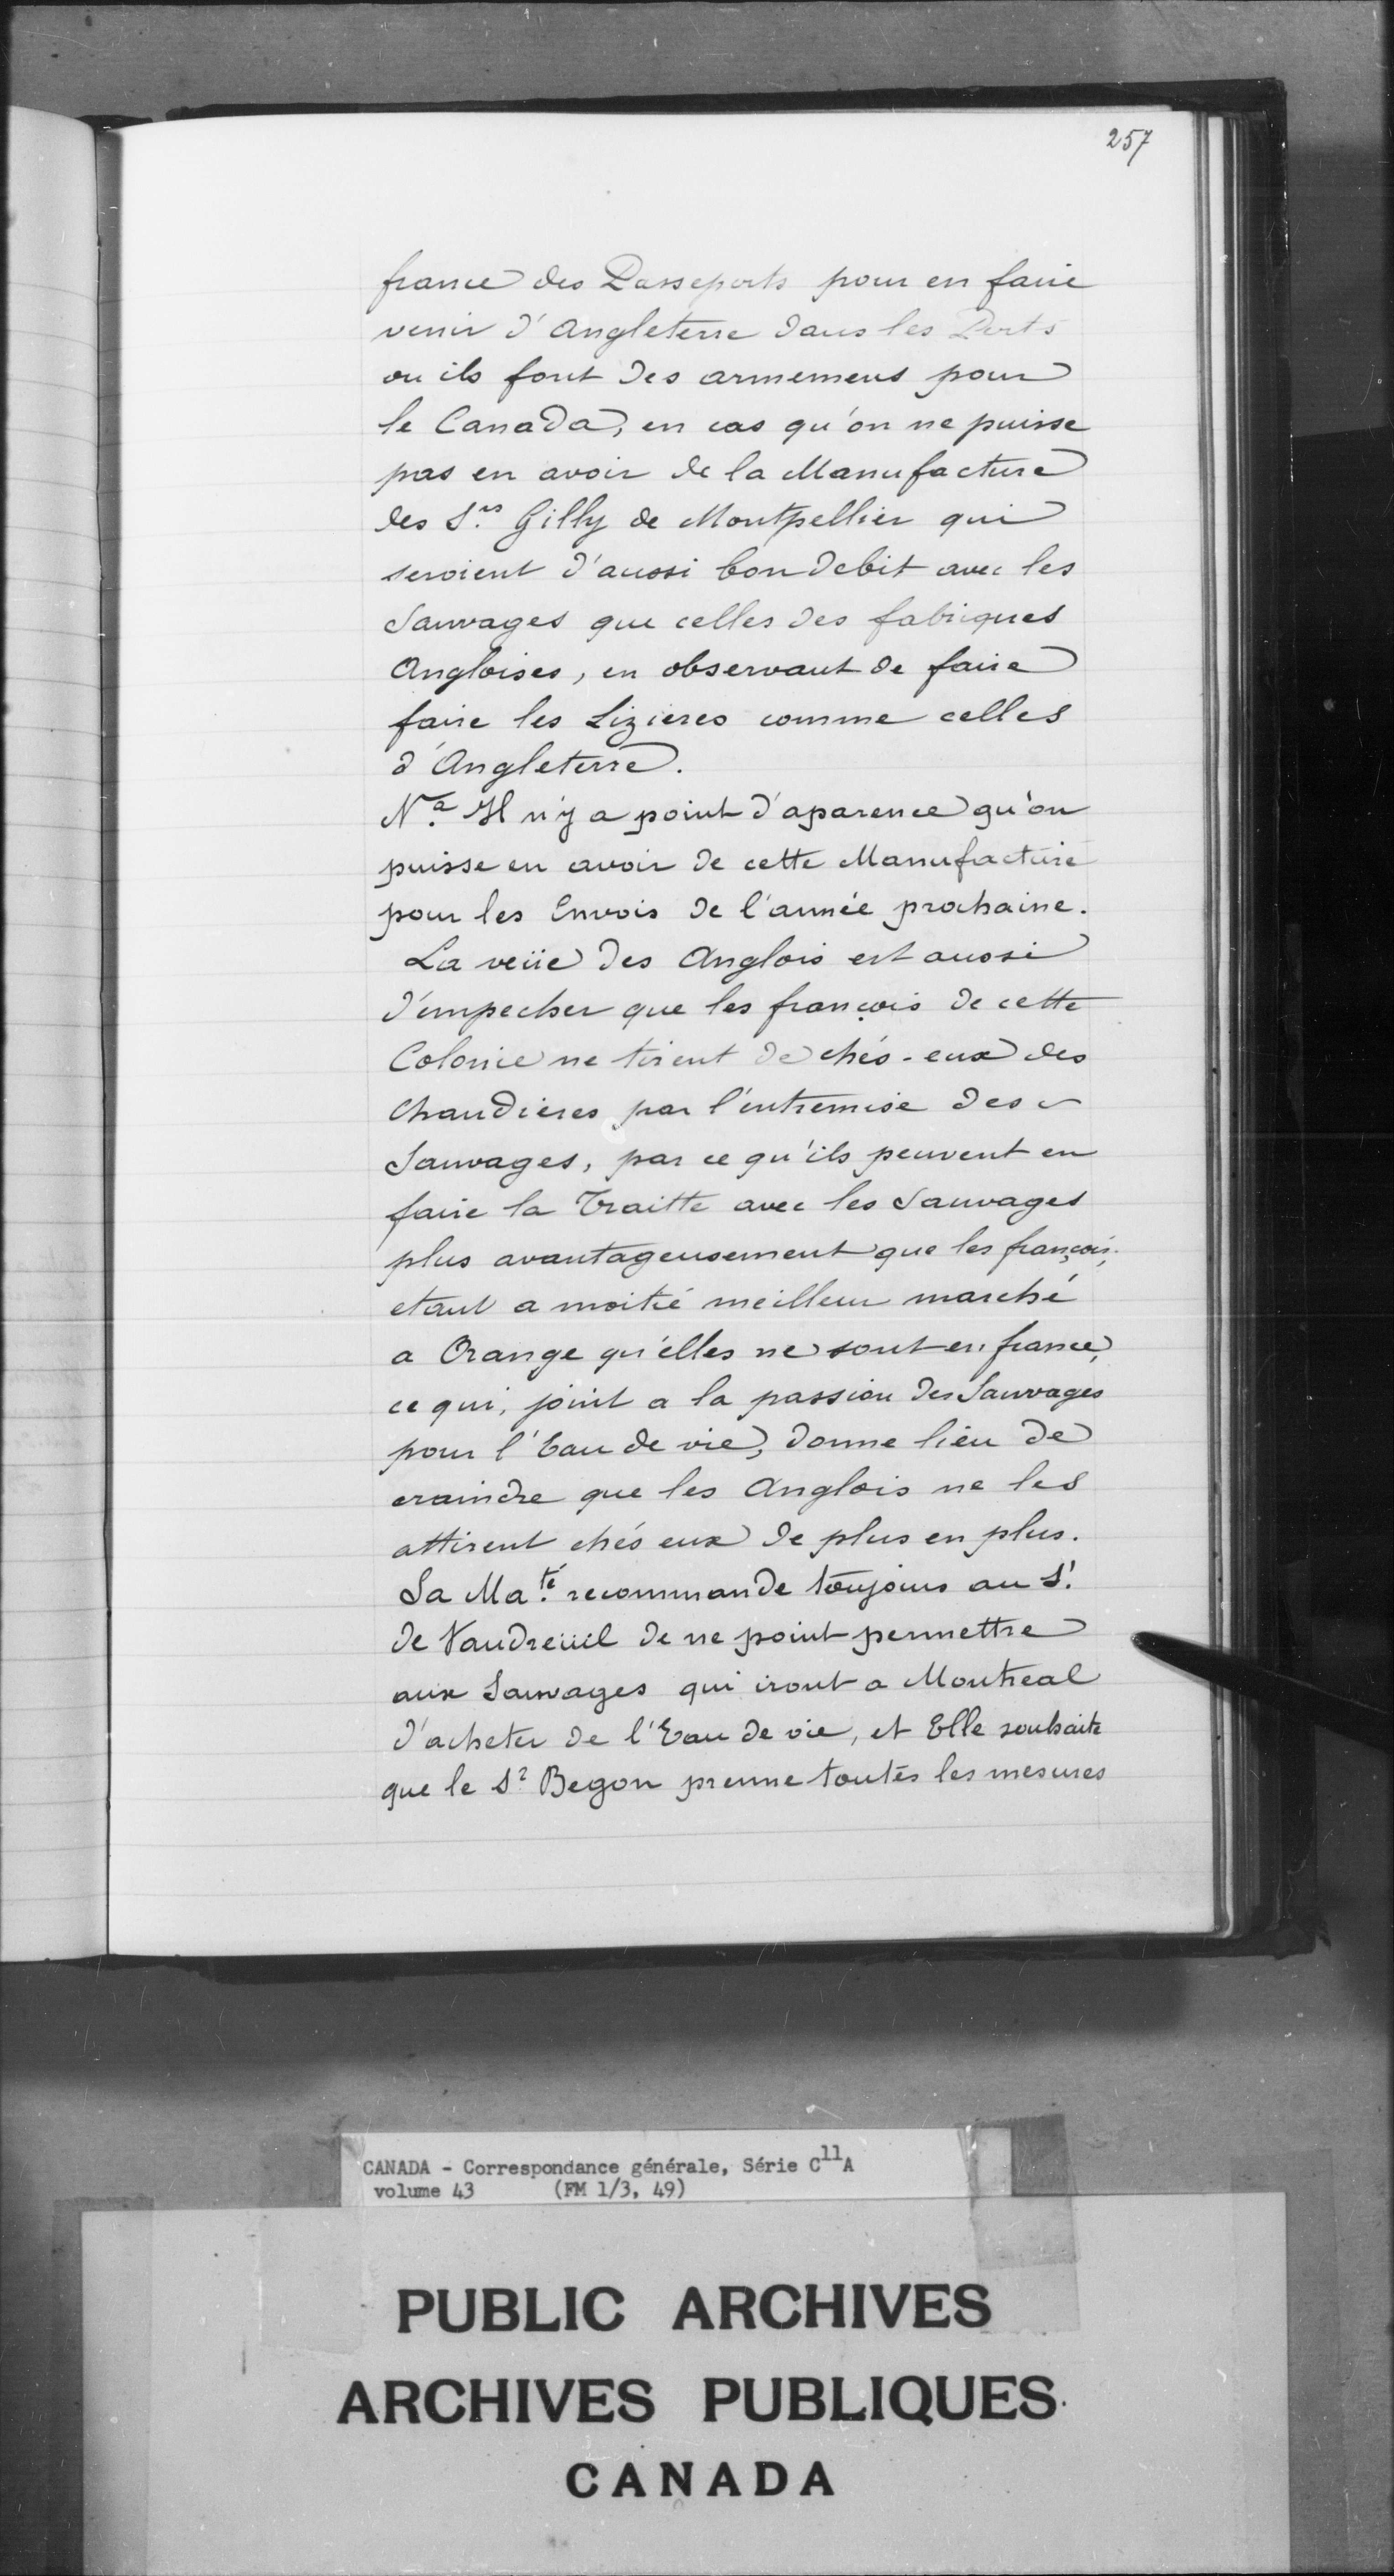 257
france des Passeports pour en faire
venir d'Angleterre dans les Ports
ou ils font des armemens pour
le Canada, en cas qu'on ne puisse
pas en avoir de la Manufacture
des S.rs Gilly de Montpellier qui
seroient d'aussi bon debit avec les
Sauvages que celles des fabriques
Angloises, en observant de faire
faire les Lizieres comme celles
d'Angleterre.
N.a Il n'y a point d'aparence qu'on
puisse en avoir de cette Manufacture
pour les Envois de l'année prochaine.
La veüe des Anglois est aussi
d'empecher que les françois de cette
Colonie ne tirent de chés-eux des
Chaudieres par l'entremise des
Sauvages, par ce qu'ils peuvent en
faire la Traitte avec les Sauvages
plus avantageusement que les françois,
etant a moitié meilleur marché
a Orange qu'elles ne sont en france,
ce qui, joint a la passion des Sauvages
pour l'Eau de vie, donne lieu de
craindre que les Anglois ne les
attirent chés eux de plus en plus.
Sa Ma.té recommande toujours au S.r
de Vaudreüil de ne point permettre
aux Sauvages qui iront a Montreal
d'acheter de l'Eau de vie, et Elle souhaite
que le S.r Begon prenne toutes les mesures
CANADA - Correspondance générale, Série C11A
volume 43 (FM 1/3, 49)
PUBLIC ARCHIVES
ARCHIVES PUBLIQUES
CANADA